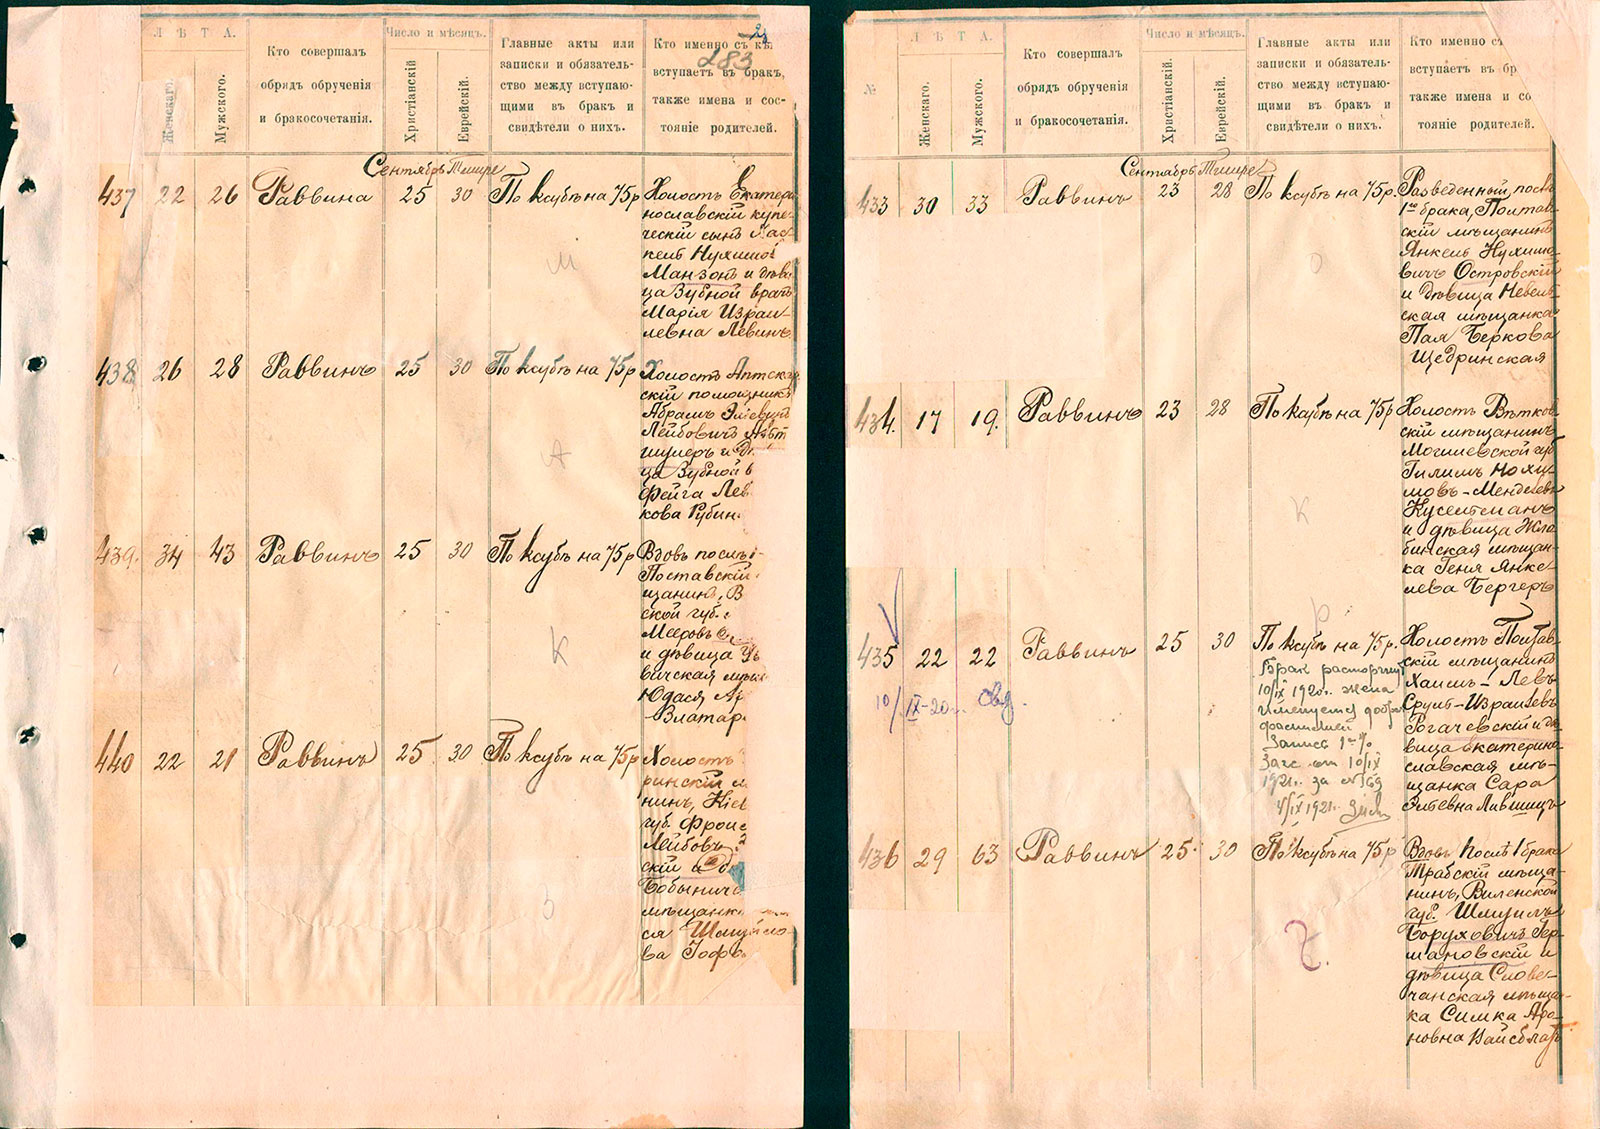 283
Л Ѣ Т А.
Женскаго.
Мужского.
Кто совершалъ
обрядъ обрученія
и бракосочетанія.
Число и мѣсяцъ.
Христіанскій
Еврейскій.
Главные акты или
записки и обязатель-
ство между вступаю-
щими въ бракъ и
свидѣтели о нихъ.
Кто именно съ кѣ
вступаетъ въ бракъ,
также имена и сос-
тояніе родителей.
Сентябрь Тишре
437 22 26 Раввина 25 30 По ксубѣ на 75 р
Холостъ Екатери
нославскій купе
ческій сынъ
Нухимов
Манзонъ и дѣви
ца Зубной врачъ
Марія Израи-
левна Левинъ
438 26 28 Раввинъ 25 30 По ксубѣ на 75 р
Холостъ Аптекар
скій помощникъ
Абрамъ
Лейбовичъ
шулеръ и Дѣ
ца Зубной в
Фейга Лев
кова Рубин
439. 34 43 Раввинъ 25 30 По ксубѣ на 75 р
Вдовъ послѣ
Поставскій
щанинъ, В
ской губ.
Мееровъ
и дѣвица
вичская мѣщ
Юдася Ар
Златар
440 22 21 Раввинъ 25 30 По ксубѣ на 75 р
Холостъ
ринскій м
нинъ, Кіев
губ. Фроим
Лейбовъ
скій и д
Бобынич
мѣщанк
ся Шмуйло-
ва Гофм
№
Л Ѣ Т А.
Женскаго.
Мужского.
Кто совершалъ
обрядъ обрученія
и бракосочетанія.
Число и мѣсяцъ.
Христіанскій.
Еврейскій.
Главные акты или
записки и обязатель-
ство между вступаю-
щими въ бракъ и
свидѣтели о нихъ.
Кто именно съ
вступаетъ въ бр
также имена и со
тояніе родителей.
Сентябрь Тишре
433 30 33 Раввинъ 23 28 По ксубѣ на 75 р.
Разведенный, послѣ
1го брака, Полтав-
скій мѣщанинъ
Янкель Нухимо-
вичъ Островскій
и дѣвица Невель-
ская мѣщанка
Пая Беркова
Щедринская
434. 17 19. Раввинъ 23 28 По ксубѣ на 75 р
Холостъ Вѣтков
скій мѣщанинъ
Могилевской губ
Гилимъ Нохи-
мовъ-Менделевъ
и дѣвица Жло
бинская мѣщан-
ка Геня Янке-
лева Бергеръ
435 22 22 Раввинъ 25 30 По ксубѣ на 75 р.
10/IX-20 г. свд.
Брак расторгнут
10/IX 1920 г. жена
фамилией
Запись
Загс от 10/IX
1921 г. за № 169
4/IX 1921 г.
Холостъ Полтав-
скій мѣщанинъ
Хаимъ-Левъ
Сруль-Израилевъ
Рогачевскій и дѣ
вица екатерино
славская мѣ-
щанка Сара
Лившицъ
436 29 63 Раввинъ 25 30 По ксубѣ на 75 р
Вдовъ послѣ 1 брака
Трабскій мѣща-
нинъ, Виленской
губ. Шмуилъ
Боруховичъ Гер-
мановскій и
дѣвица Слове-
чанская мѣщан-
ка Симка Аро-
новна Вайсблатъ